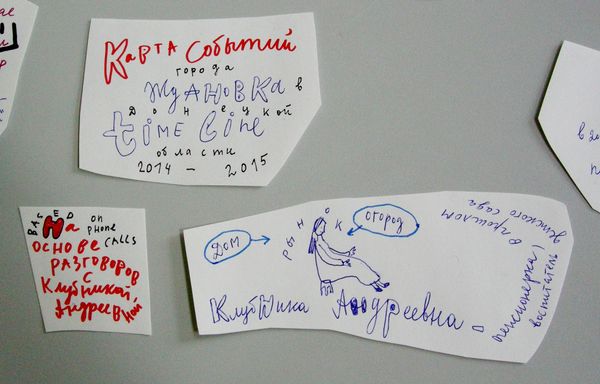 Карта Событий
города
Ждановка в
Донецкой
time line
области
2014 - 2015
BASED
на on
phone
основе calls
разговоров
с
Клубникой
Андреевной
ДОМ
РЫНОК
ОГОРОД
Клубника Андреевна -
пенсионерка,
воспитатель
детского сада
в прошлом